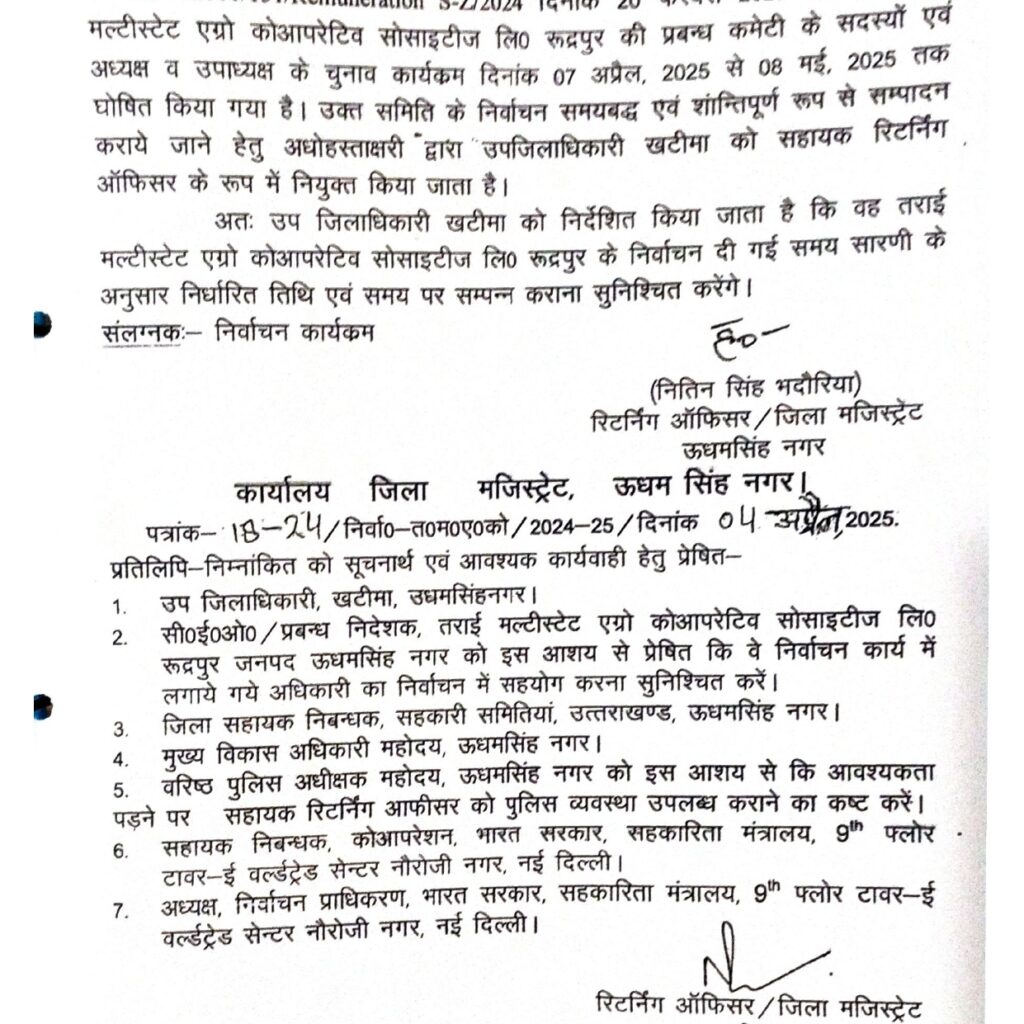 मल्टीस्टेट एग्रो कोआपरेटिव सोसाइटीज लि0 रूद्रपुर की प्रबन्ध कमेटी के सदस्यों एवं
अध्यक्ष व उपाध्यक्ष के चुनाव कार्यक्रम दिनांक 07 अप्रैल, 2025 से 08 मई, 2025 तक
घोषित किया गया है। उक्त समिति के निर्वाचन समयबद्ध एवं शान्तिपूर्ण रूप से सम्पादन
कराये जाने हेतु अधोहस्ताक्षरी द्वारा उपजिलाधिकारी खटीमा को सहायक रिटर्निंग
ऑफिसर के रूप में नियुक्त किया जाता है।
अतः उप जिलाधिकारी खटीमा को निर्देशित किया जाता है कि वह तराई
मल्टीस्टेट एग्रो कोआपरेटिव सोसाइटीज लि0 रूद्रपुर के निर्वाचन दी गई समय सारणी के
अनुसार निर्धारित तिथि एवं समय पर सम्पन्न कराना सुनिश्चित करेंगे।
संलग्नकः– निर्वाचन कार्यक्रम
ह0–
(नितिन सिंह भदौरिया)
रिटर्निंग ऑफिसर/जिला मजिस्ट्रेट
ऊधमसिंह नगर
कार्यालय जिला मजिस्ट्रेट, ऊधम सिंह नगर।
पत्रांक– 18-24/निर्वा0–त0म0ए0को/2024–25/दिनांक 04 अप्रैल, 2025.
प्रतिलिपि–निम्नांकित को सूचनार्थ एवं आवश्यक कार्यवाही हेतु प्रेषित–
1. उप जिलाधिकारी, खटीमा, उधमसिंहनगर।
2. सी0ई0ओ0/प्रबन्ध निदेशक, तराई मल्टीस्टेट एग्रो कोआपरेटिव सोसाइटीज लि0
रूद्रपुर जनपद ऊधमसिंह नगर को इस आशय से प्रेषित कि वे निर्वाचन कार्य में
लगाये गये अधिकारी का निर्वाचन में सहयोग करना सुनिश्चित करें।
3. जिला सहायक निबन्धक, सहकारी समितियां, उत्तराखण्ड, ऊधमसिंह नगर।
4. मुख्य विकास अधिकारी महोदय, ऊधमसिंह नगर।
5. वरिष्ठ पुलिस अधीक्षक महोदय, ऊधमसिंह नगर को इस आशय से कि आवश्यकता
पड़ने पर सहायक रिटर्निंग आफीसर को पुलिस व्यवस्था उपलब्ध कराने का कष्ट करें।
6. सहायक निबन्धक, कोआपरेशन, भारत सरकार, सहकारिता मंत्रालय, 9th फ्लोर
टावर–ई वर्ल्डट्रेड सेन्टर नौरोजी नगर, नई दिल्ली।
7. अध्यक्ष, निर्वाचन प्राधिकरण, भारत सरकार, सहकारिता मंत्रालय, 9th फ्लोर टावर–ई
वर्ल्डट्रेड सेन्टर नौरोजी नगर, नई दिल्ली।
रिटर्निंग ऑफिसर/जिला मजिस्ट्रेट